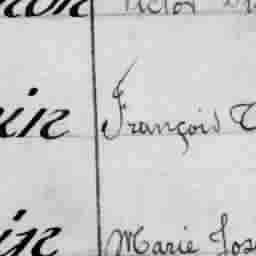 Victor
in François
in Marie Jos